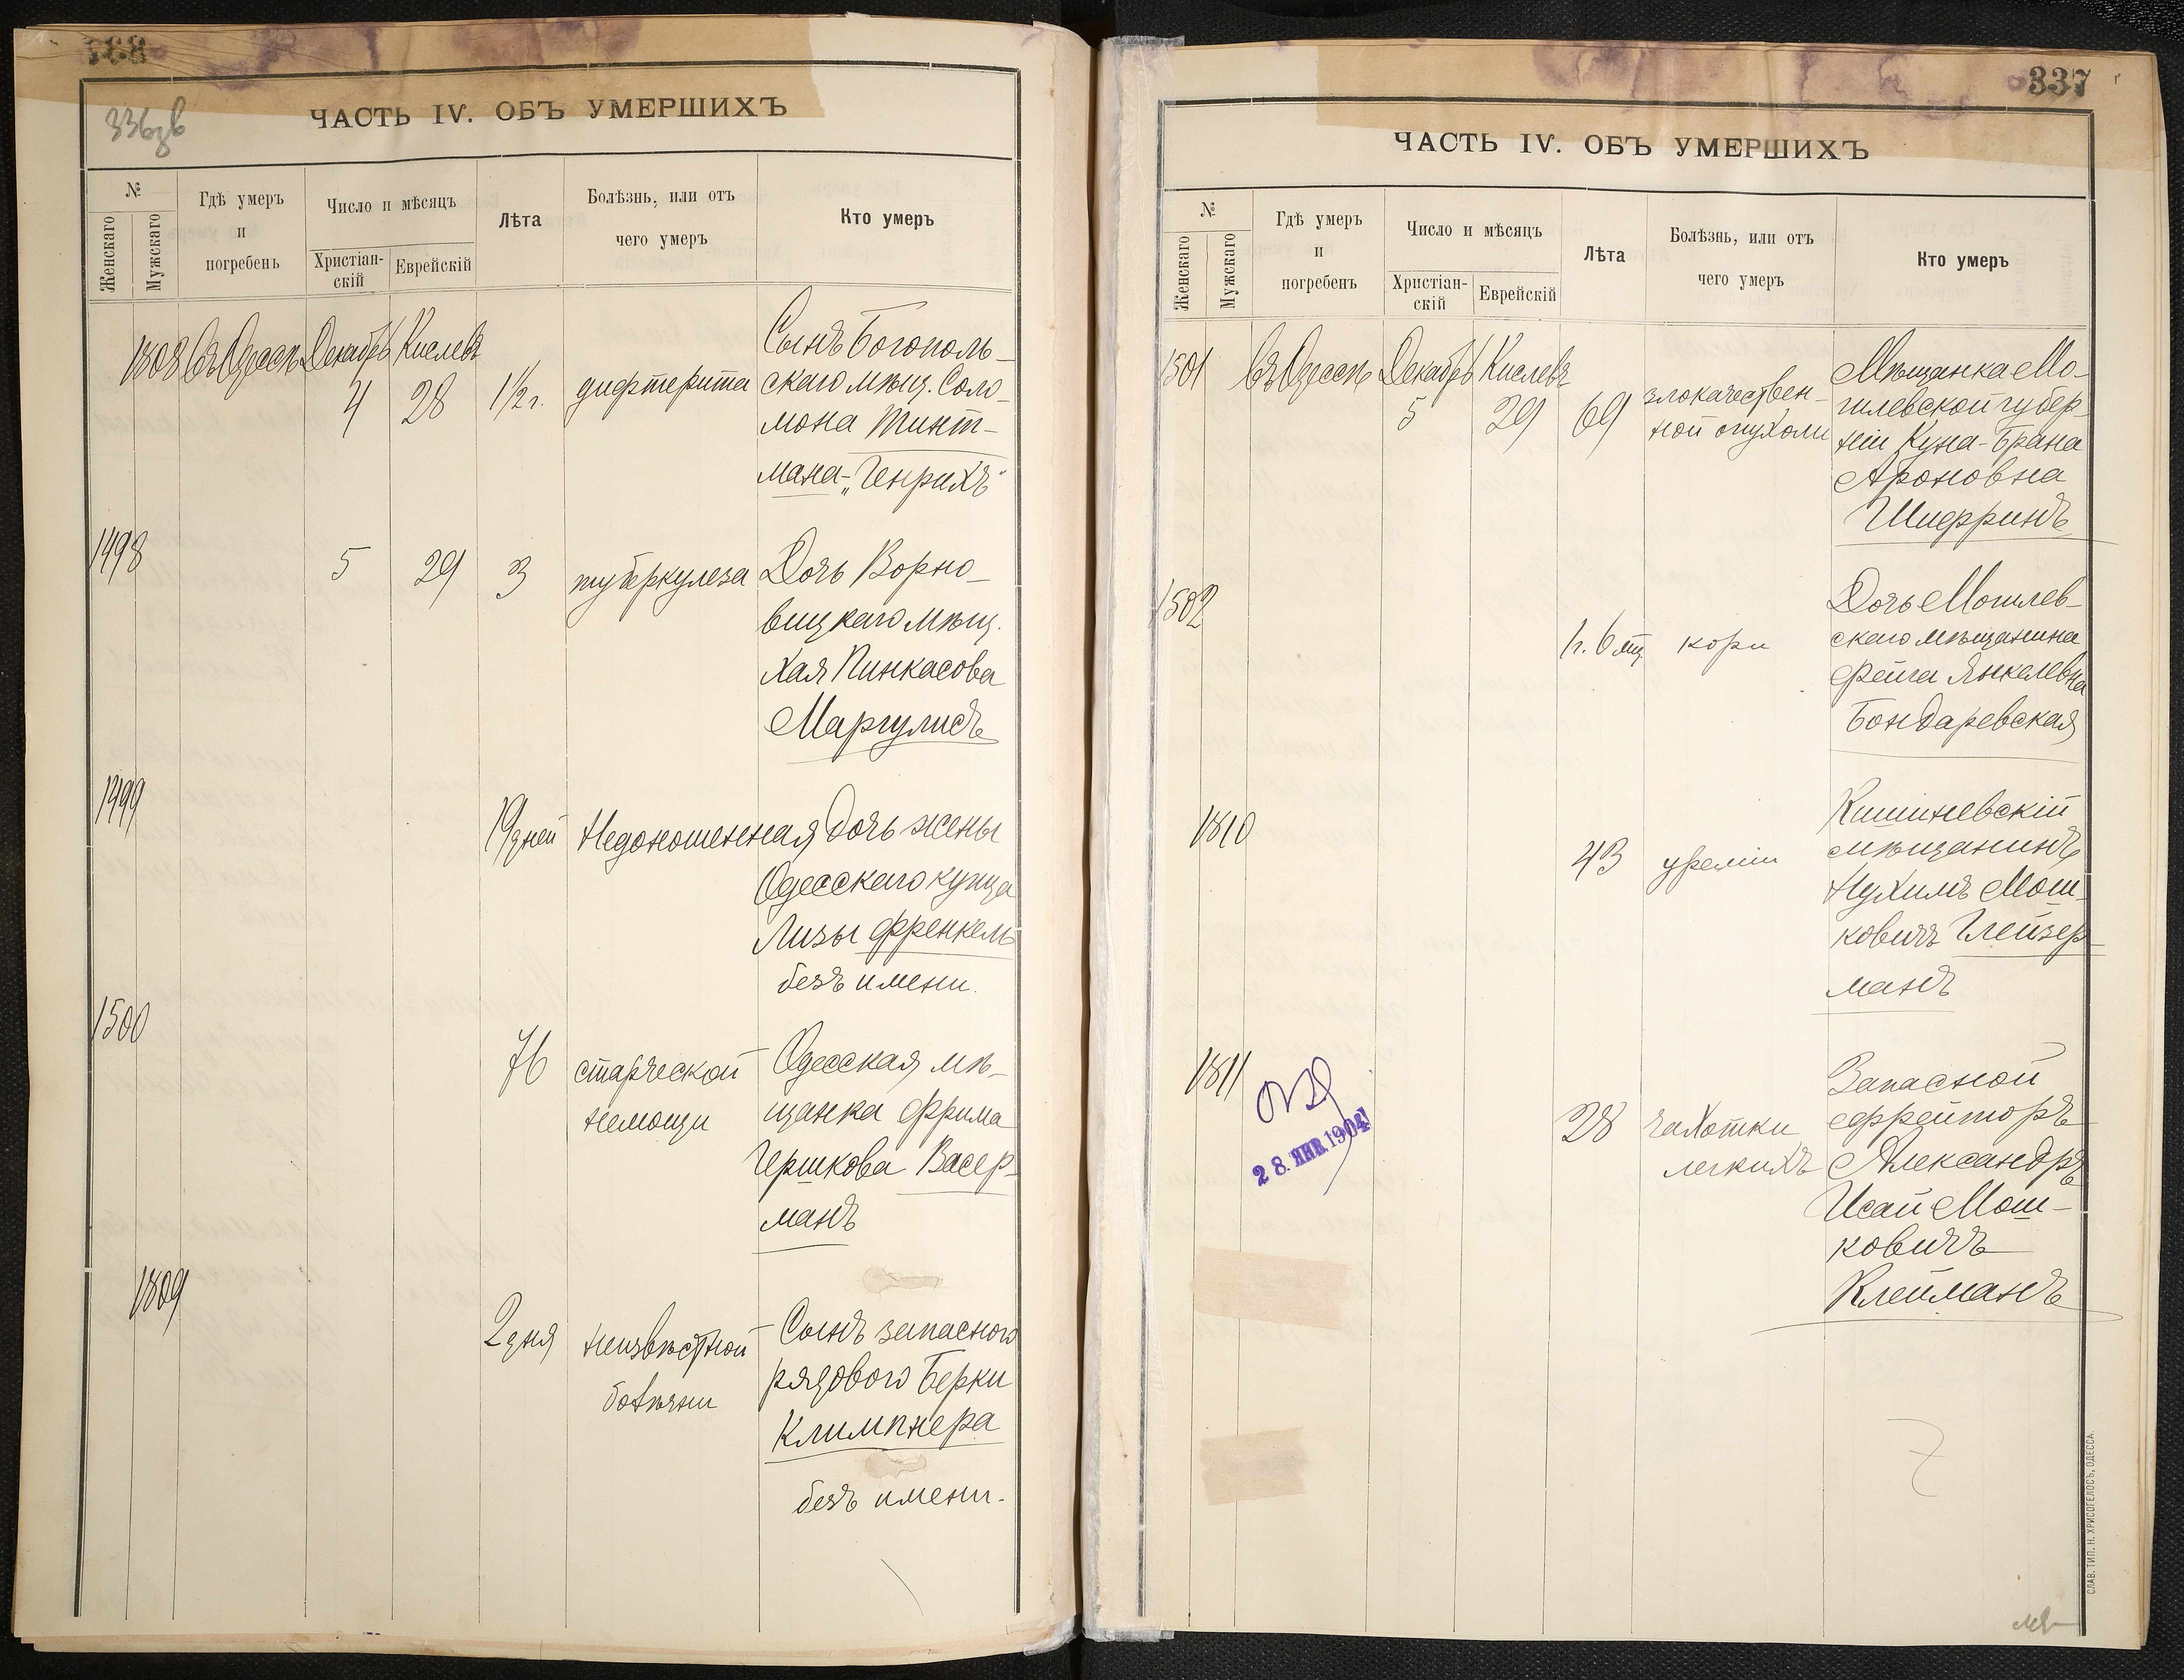 336зв
ЧАСТЬ IV. ОБЪ УМЕРШИХЪ
№
Женскаго
Мужскаго
Гдѣ умеръ
и
погребенъ
Число и мѣсяцъ
Христіан-
скій
Еврейскій
Лѣта
Болѣзнь, или отъ
чего умеръ
Кто умеръ
1808 въ Одессѣ Декабрь Кислевъ
4 28 1½ г. дифтерита
Сынъ Богополь-
скаго мѣщ. Соло-
мона Тинт-
мана-„Генрихъ“
1498
5 29 3 туберкулеза
Дочь Ворно-
вицкаго мѣщ.
Хая Пинкасова
Маргулисъ
1499
19 дней Недоношенная дочь жены
Одесскаго купца
Лизы Френкель
безъ имени.
1500
76 старческой
немощи
Одесская мѣ-
щанка Фрима
Гершкова Васер-
манъ
1809
2 дня неизвѣстной
болѣзни
Сынъ запаснаго
рядового Берки
Климпнера
безъ имени.
337
ЧАСТЬ IV. ОБЪ УМЕРШИХЪ
№
Женскаго
Мужскаго
Гдѣ умеръ
и
погребенъ
Число и мѣсяцъ
Христіан-
скій
Еврейскій
Лѣта
Болѣзнь, или отъ
чего умеръ
Кто умеръ
1501 въ Одессѣ Декабрь Кислевъ
5 29 69 злокачествен-
ной опухоли
Мѣщанка Мо-
гилевской губер-
ніи Куна-Брана
Ароновна
Шифринъ
1502
1 г. 6 мц кори
Дочь Могилев-
скаго мѣщанина
Фейга Янкелевна
Бондаревская
1810
43 уреміи
Кишиневскій
мѣщанинъ
Нухимъ Мош-
ковичъ Глейзер-
манъ
1811
28 ЯНВ. 1904
28 чахотки
легкихъ
Запасной
ефрейторъ
Александръ
Исай Мош-
ковичъ
Клейманъ
СЛАВ. ТИП. Н. ХРИСОГЕЛОСЪ, ОДЕССА.